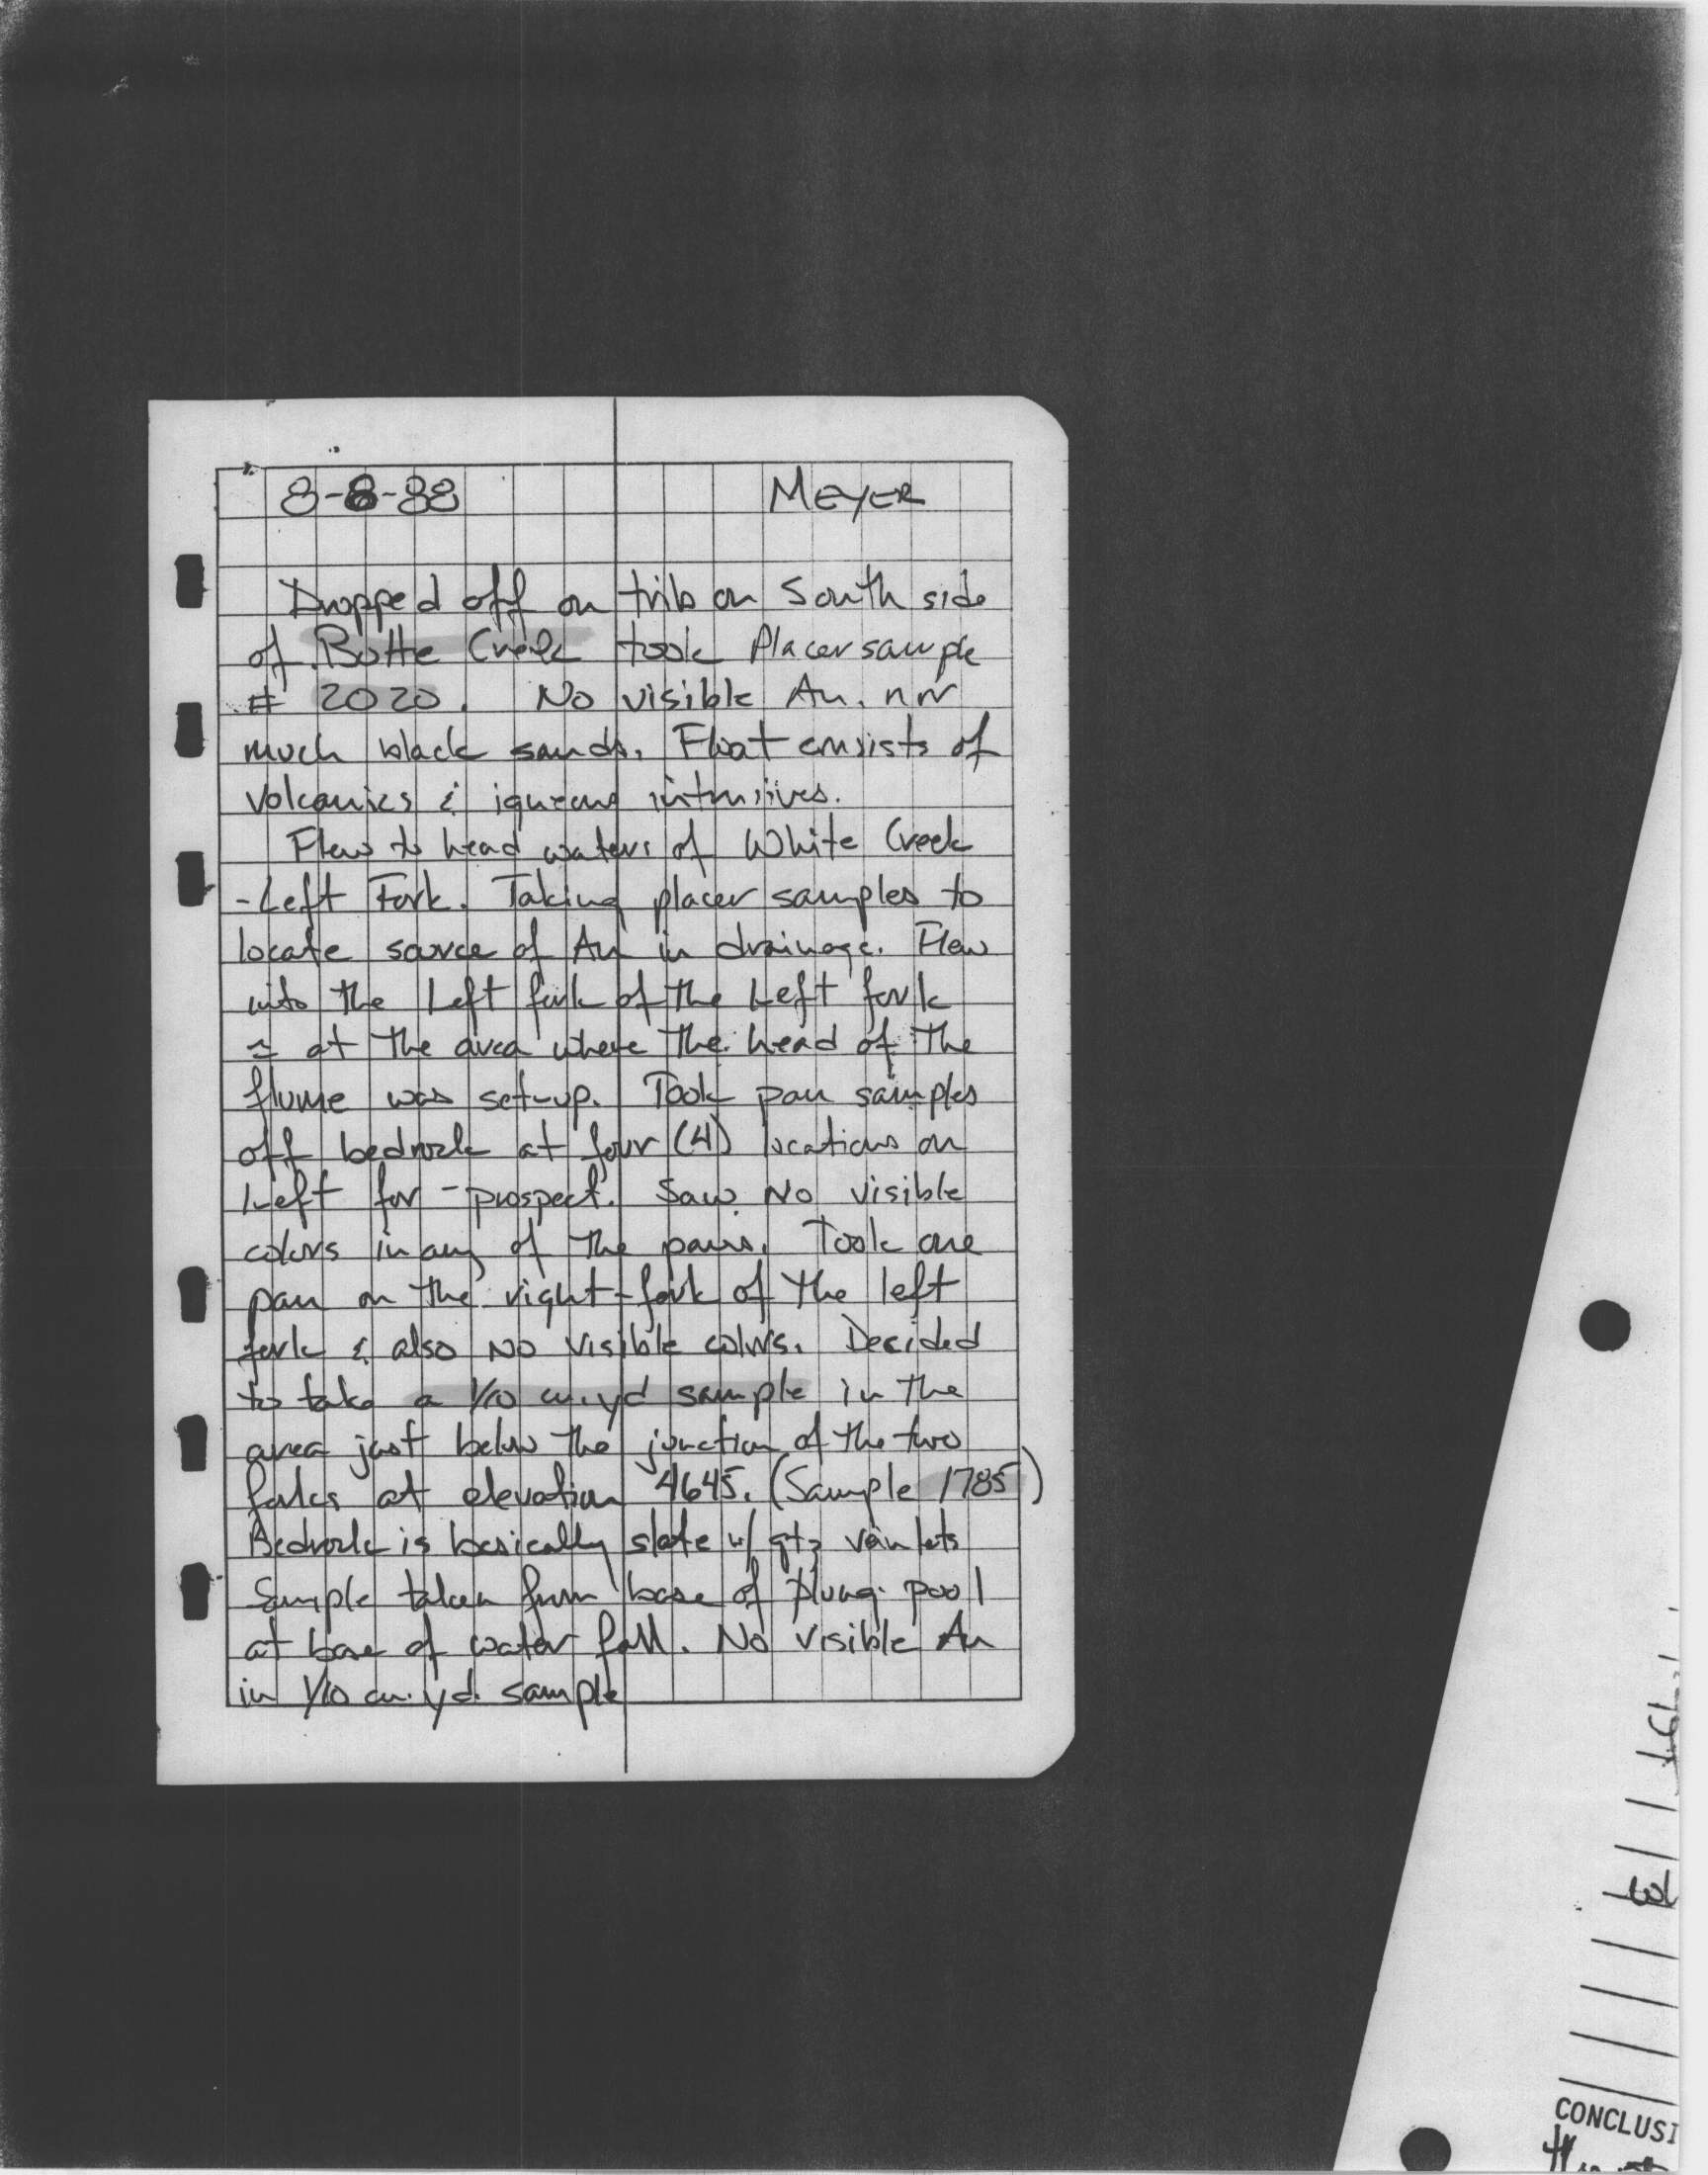 8-8-88 MEYER
Dropped off on trib on South side
of Butte Creek took Placer sample
# 2020. No visible Au. nor
much black sands. Float consists of
volcanics & igneous intrusives.
Flew to head waters of White Creek
-Left Fork. Taking placer samples to
locate source of Au in drainage. Flew
into the Left fork of the Left fork
≈ at the area where the head of the
flume was set-up. Took pan samples
off bedrock at four (4) locations on
Left for - prospect. Saw No visible
colors in any of the pans. Took one
pan on the right-fork of the left
fork & also NO visible colors. Decided
to take a 1/10 cu.yd sample in the
area just below the junction of the two
forks at elevation 4645. (Sample 1785)
Bedrock is basically slate w/ qtz veinlets
Sample taken from base of plung pool
at base of water fall. No visible Au
in 1/10 cu. yd. sample
CONCLUSI